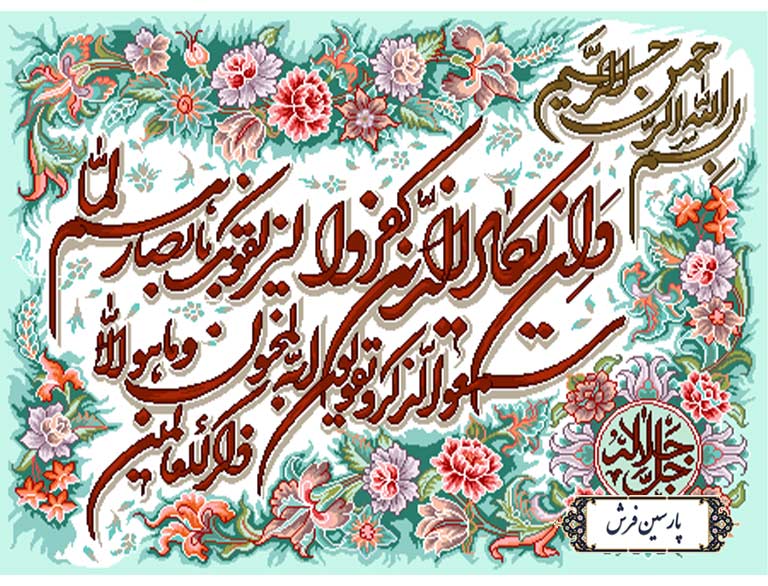 بسم الله الرحمن الرحیم
وان یکاد الذین کفروا لیزلقونک بابصارهم لما
سمعوا الذکر و یقولون انه لمجنون وما هو الا
ذکر للعالمین
جل جلاله
پارسین فرش